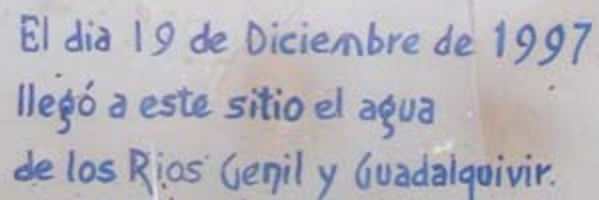 El dia 19 de Diciembre de 1997
llegó a este sitio el agua
de los Rios Genil y Guadalquivir.